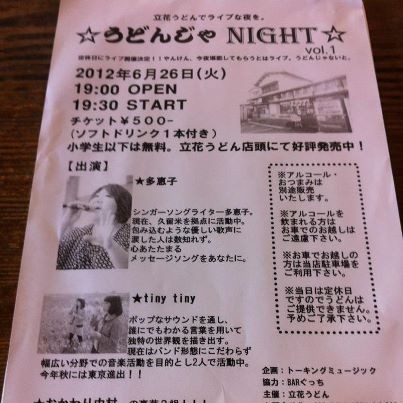 立花うどんでライブな夜を。
☆うどんじゃ NIGHT☆
vol.1
定休日にライブ開催決定!!やんけん、今夜堪能してもらうとはライブ。うどんじゃないと。
2012年6月26日(火)
19:00 OPEN
19:30 START
チケット¥500-
(ソフトドリンク1本付き)
小学生以下は無料。立花うどん店頭にて好評発売中!
【出演】
★多恵子
シンガーソングライター多恵子。
現在、久留米を拠点に活動中。
包み込むような優しい歌声に
涙した人は数知れず。
心あたたまる
メッセージソングをあなたに。
★tiny tiny
ポップなサウンドを通し、
誰にでもわかる言葉を用いて
独特の世界観を描き出す。
現在はバンド形態にこだわらず
幅広い分野での音楽活動を目的とし2人で活動中。
今年秋には東京進出!!
※アルコール・
おつまみは
別途販売
いたします。
※アルコールを
飲まれる方は
お車でのお越しは
ご遠慮下さい。
※お車でお越しの
方は当店駐車場を
ご利用下さい。
※当日は定休日
ですのでうどんは
ご提供できません。
予めご了承下さい。
企画:トーキングミュージック
協力:BARぐっち
主催:立花うどん
★おかわり中村